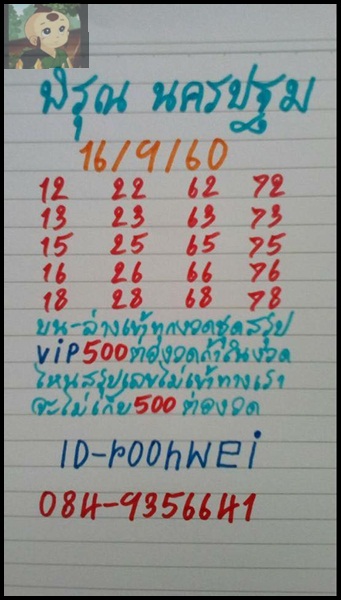 พิรุณ นครปฐม
16/9/60
12 22 62 72
13 23 63 73
15 25 65 75
16 26 66 76
18 28 68 78
บน-ล่างเข้าทุกงวดชุดสรุป
VIP500ต่องวดถ้าในงวด
ไหนสรุปเลขไม่เข้าทางเรา
จะไม่เก็บ500ต่องวด
ID-roohwei
084-9356641